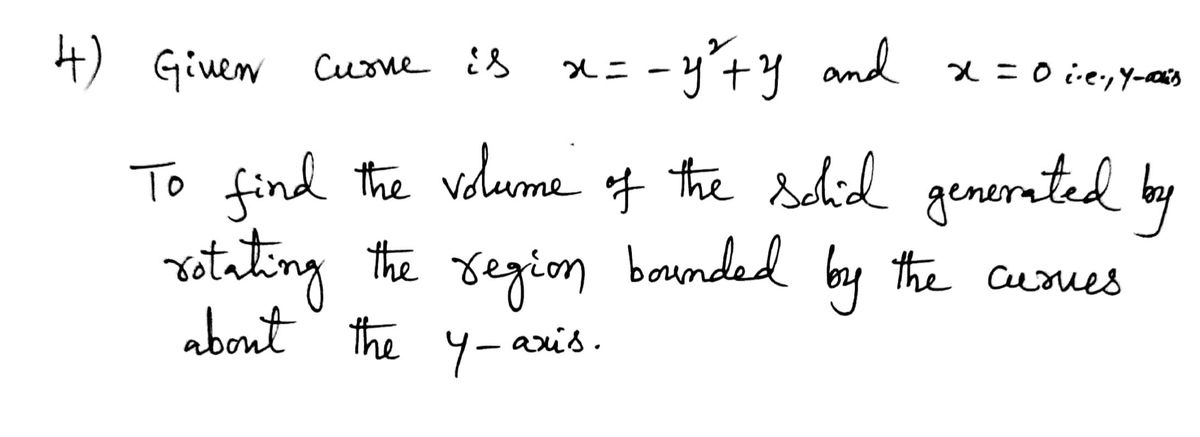 4) Given curve is x = -y²+y and x = 0 i.e., y-axis
To find the volume of the solid generated by
rotating the region bounded by the curves
about the y-axis.